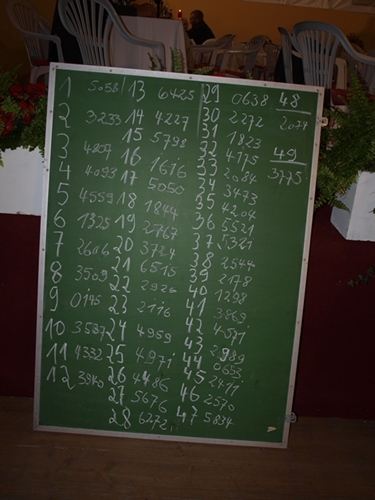 1 5058
2 3233
3 4807
4 4093
5 4559
6 1325
7 2606
8 3509
9 0145
10 3587
11 4332
12 3940
13 6425
14 4227
15 5798
16 1616
17 5050
18 1844
19 2767
20 3724
21 6515
22 2926
23 2116
24 4959
25 4971
26 4486
27 5676
28 6272
29 0638
30 2272
31 1823
32 4775
33 2084
34 3473
35 4204
36 5521
37 5321
38 2544
39 2178
40 1298
41 3869
42 4071
43 2989
44 0653
45 2411
46 2570
47 5834
48
2074
49
3775